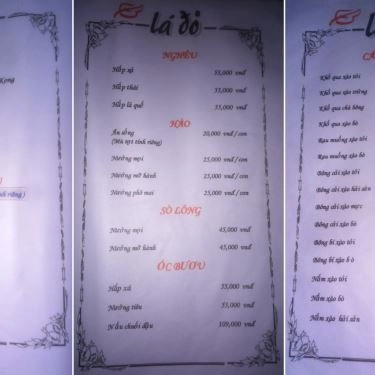 Kong
riêng )
lá đỏ
NGHÊU
Hấp xả 55,000 vnđ
Hấp thái 55,000 vnđ
Hấp lá quế 55,000 vnđ
HÀO
Ăn sống 20,000 vnđ / con
(Mù tạt tính riêng)
Nướng mọi 25,000 vnđ / con
Nướng mỡ hành 25,000 vnđ / con
Nướng phô mai 25,000 vnđ / con
SÒ LÔNG
Nướng mọi 45,000 vnđ
Nướng mỡ hành 45,000 vnđ
ỐC BƯƠU
Hấp xả 55,000 vnđ
Nướng tiêu 55,000 vnđ
Nấu chuối đậu 109,000 vnđ
Khổ qua xào tỏi
Khổ qua xào trứng
Khổ qua chà bông
Khổ qua xào bò
Rau muống xào tỏi
Rau muống xào bò
Bông cải xào tỏi
Bông cải xào hải sản
Bông cải xào mực
Bông cải xào bò
Bông bí xào tỏi
Bông bí xào bò
Nấm xào tỏi
Nấm xào bò
Nấm xào hải sản